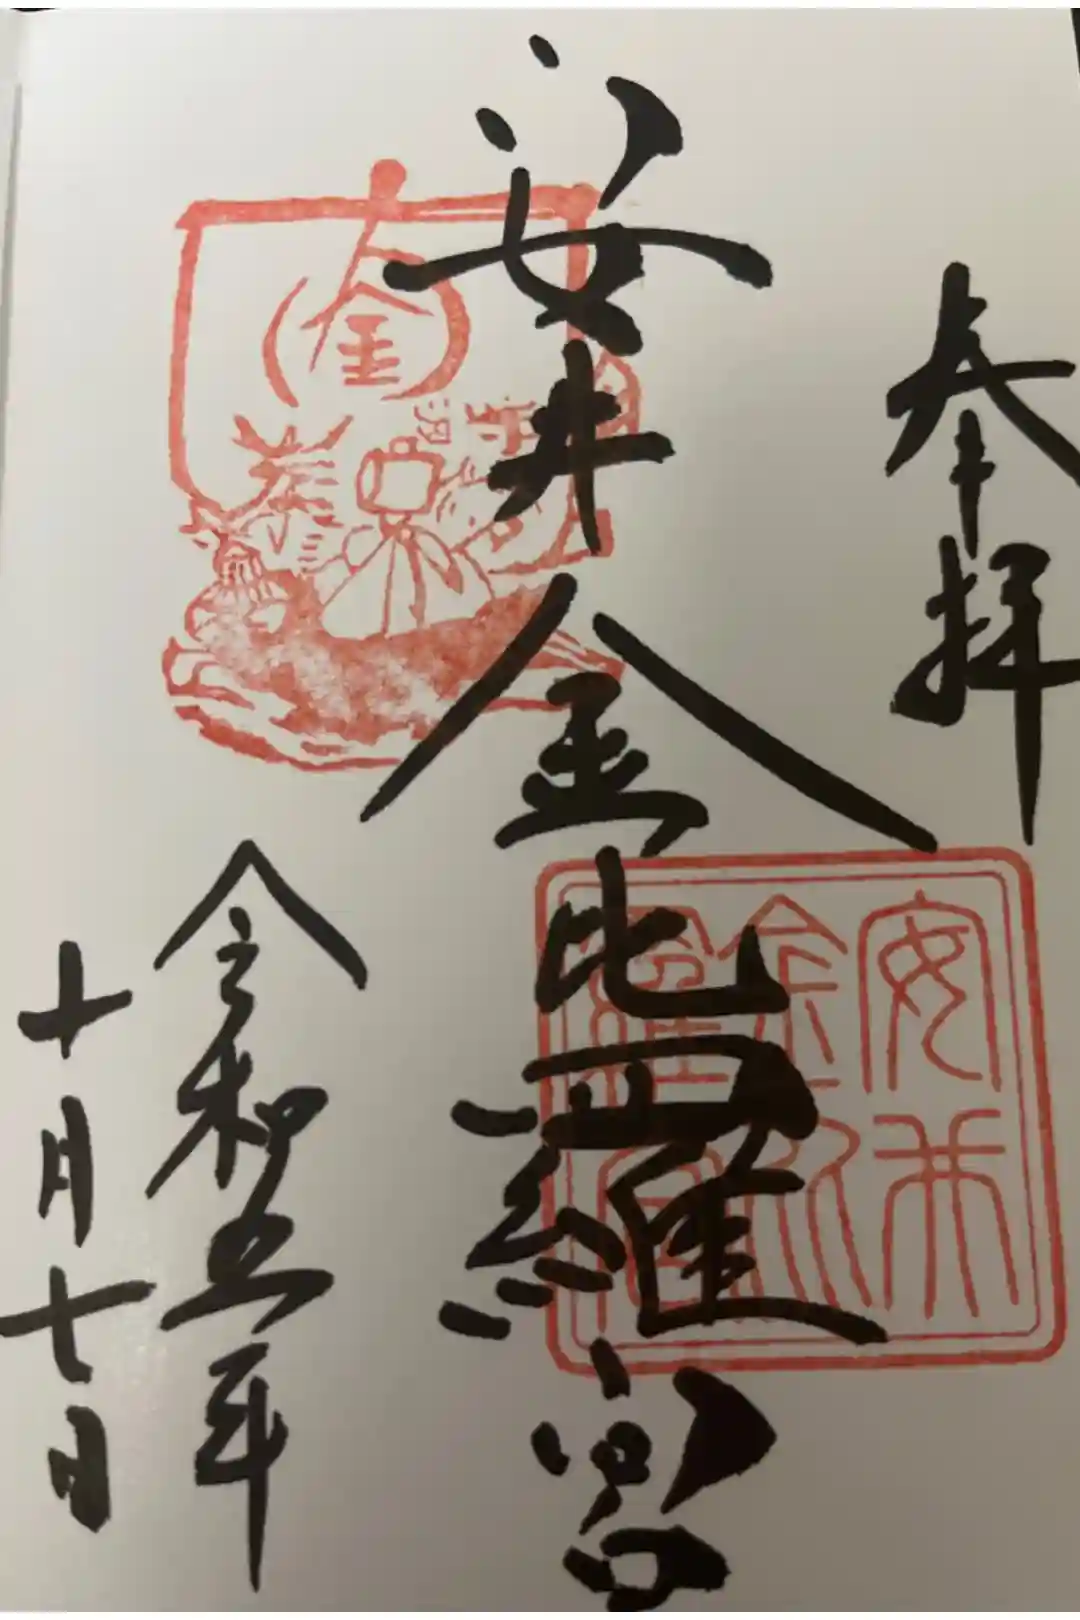 奉拝
安井金比羅宮
令和五年
十月七日
金
安井
金比
羅宮